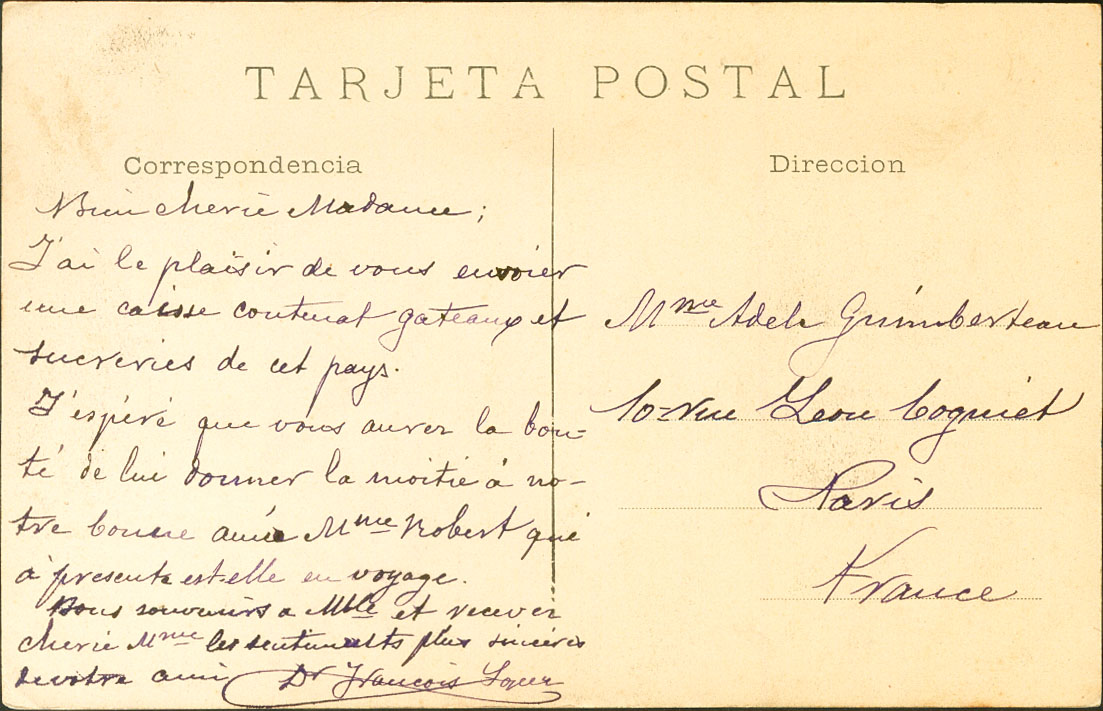 TARJETA POSTAL
Correspondencia
Bien cherie Madame;
J'ai le plaisir de vous envoier
une caisse contenat gateaux et
sucreries de cet pays.
J'espére que vous aurer la bon-
té de lui donner la moitie á no-
tre bonne amie Mme Robert qui
á presente est elle en voyage.
Bons souvenirs a Mlle et recever
cherie Mme les sentiments plus sincéres
de votre ami Dr Francois
Direccion
Mme Adele Grimberteau
10-rue Leon Cogniet
Paris
France